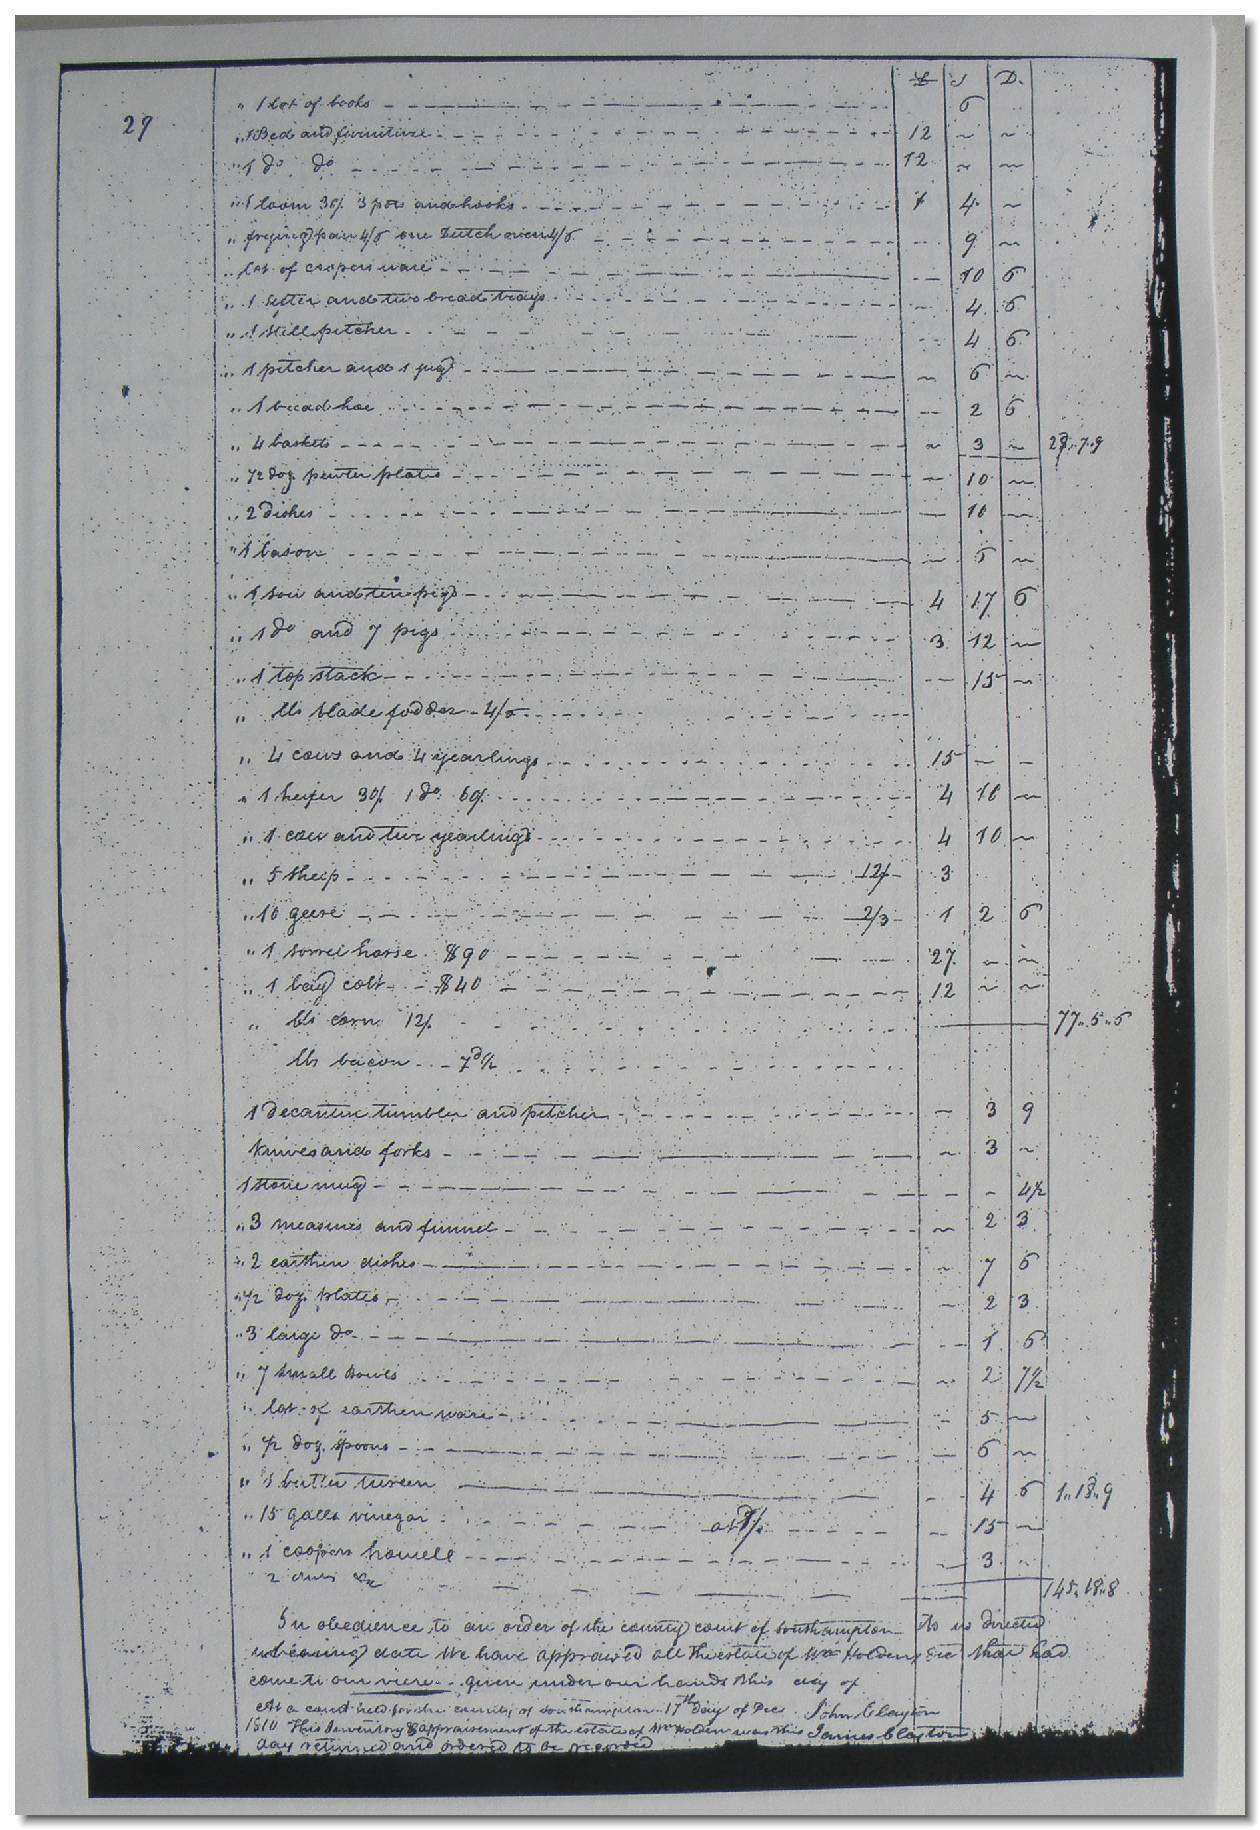 £ S D.
29
" 1 lot of books 6
" 1 Bed and furniture 12 ~ ~
" 1 do do 12 ~ ~
" 1 loom 30/. 3 pots and hooks 4 ~
" frying pan 4/6 one Dutch oven 4/6 9 ~
" lot of coopers ware 10 6
" 1 sifter and two bread trays 4 6
" 1 still pitcher 4 6
" 1 pitcher and 1 jug ~ 6 ~
" 1 broad hoe 2 6
" 4 baskets ~ 3 ~ 7..9
" 1/2 doz pewter plates 10 ~
" 2 dishes 10 ~
" 1 bason ~ 6 ~
" 1 sow and ten pigs 4 17 6
" 1 do and 7 pigs 3 12 ~
" 1 top stack 15 ~
" lbs blade fodder 4/6
" 4 cows and 4 yearlings 15 – –
" 1 heifer 30/. 1 do. 60/. 4 10 ~
" 1 cow and two yearlings 4 10 ~
" 5 sheep 12/ 3
" 10 geese 2/3 1 2 6
" 1 sorrel horse $90 27 ~ ~
" 1 bay colt $40 12 ~ ~
" bls corn 12/. 77..5..6
lbs bacon 7d 1/2
1 Decanter tumbler and pitcher – 3 9
Knives and forks ~ 3 ~
1 stone mug – – 4 1/2
" 3 measures and funnel ~ 2 3
" 2 earthen dishes ~ 7 6
" 1/2 doz. plates ~ 2 3
" 3 large do 1 6
" 7 small bowls ~ 2 7 1/2
" lot of earthen ware 5 ~
" 1/2 doz. spoons 6 ~
" 1 butter tureen 4 6 1..18..9
" 15 galls vinegar at 15 ~
" 1 coopers howell ~ 3
2 145..18..8
In obedience to an order of the county court of Southampton to us directed
date We have appraised all the estate of Wm Holden dec that had
come to our view given under our hands this day of
At a court held for the county of Southampton 17th Day of Dec John Clayton
1810 This Inventory & appraisement of the estate of Wm Holden was this James Clayton
day returned and ordered to be recorded